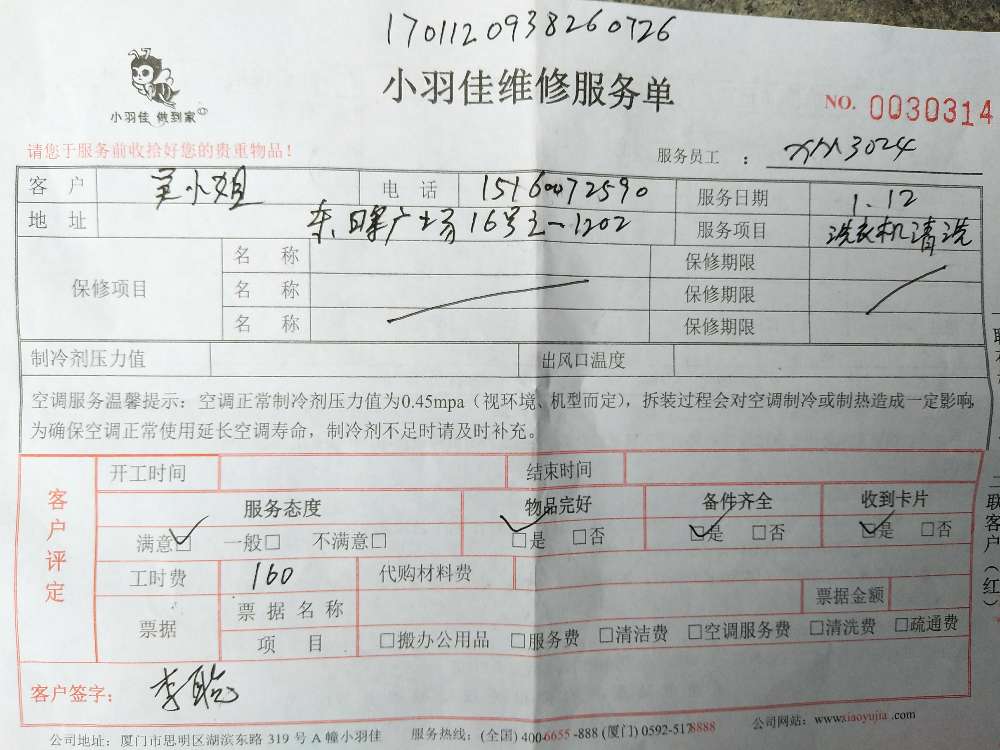 1701120938260726
小羽佳维修服务单
小羽佳 做到家
NO. 0030314
请您于服务前收拾好您的贵重物品！
服务员工 ： XM3024
客 户 吴小姐 电 话 15160072590 服务日期 1.12
地 址 东 广场16号之一1202 服务项目 洗衣机清洗
保修项目 名 称 保修期限
名 称 保修期限
名 称 保修期限
制冷剂压力值 出风口温度
空调服务温馨提示：空调正常制冷剂压力值为0.45mpa（视环境、机型而定），拆装过程会对空调制冷或制热造成一定影响，
为确保空调正常使用延长空调寿命，制冷剂不足时请及时补充。
客户评定
开工时间 结束时间
服务态度 物品完好 备件齐全 收到卡片
满意□ 一般□ 不满意□ □是 □否 □是 □否 □是 □否
工时费 160 代购材料费
票据 票据名称 票据金额
项 目 □搬办公用品 □服务费 □清洁费 □空调服务费 □清洗费 □疏通费
客户签字： 李
公司地址：厦门市思明区湖滨东路 319 号 A 幢小羽佳 服务热线：(全国) 400-6655-888 (厦门) 0592-5178888 公司网站：www.xiaoyujia.com
二联客户（红）